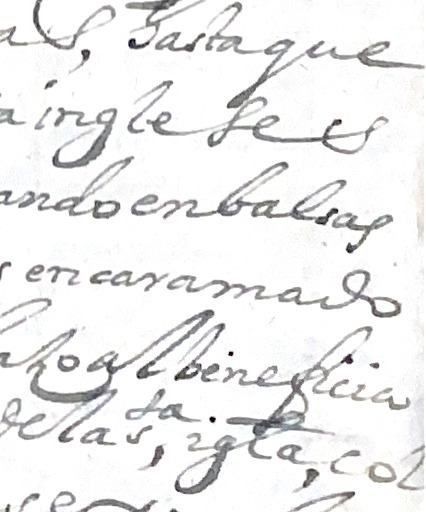 as, hasta que
a ingleses
ando en balsas
s encaramado
al beneficia
de las, sta. iglta, col